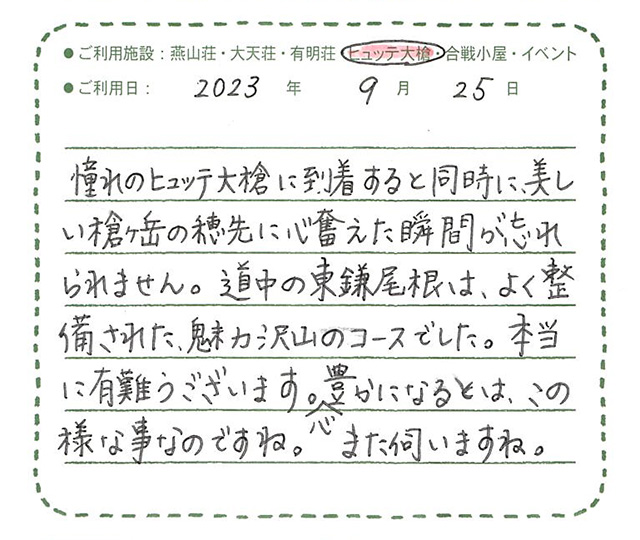 ●ご利用施設：燕山荘・大天荘・有明荘・ヒュッテ大槍・合戦小屋・イベント
●ご利用日： 2023 年 9 月 25 日
憧れのヒュッテ大槍に到着すると同時に、美し
い槍ヶ岳の穂先に心奮えた瞬間が忘れ
られません。道中の東鎌尾根は、よく整
備された、魅力沢山のコースでした。本当
に有難うございます。心豊かになるとは、この
様な事なのですね。また伺いますね。